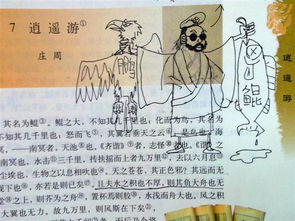 7 逍遥游①
庄周
鹏
鲲
逍遥游
其名为鲲②，鲲之大，不知其几千里也；化而为鸟，其名为
不知其几千里也；怒而飞，其翼若垂天之云。是鸟也，海
冥，——南冥者，天池也。《齐谐》者，志怪者也。《谐》之
南冥也，水击三千里，抟扶摇而上者九万里，去以六月息
尘埃也，生物之以息相吹也。天之苍苍，其正色邪？其远而无
视下也，亦若是则已矣。且夫水之积也不厚，则其负大舟也无
之上，则芥为之舟，置杯焉则胶，水浅而舟大也。风之积
大翼也无力。故九万里，则风斯在下矣，